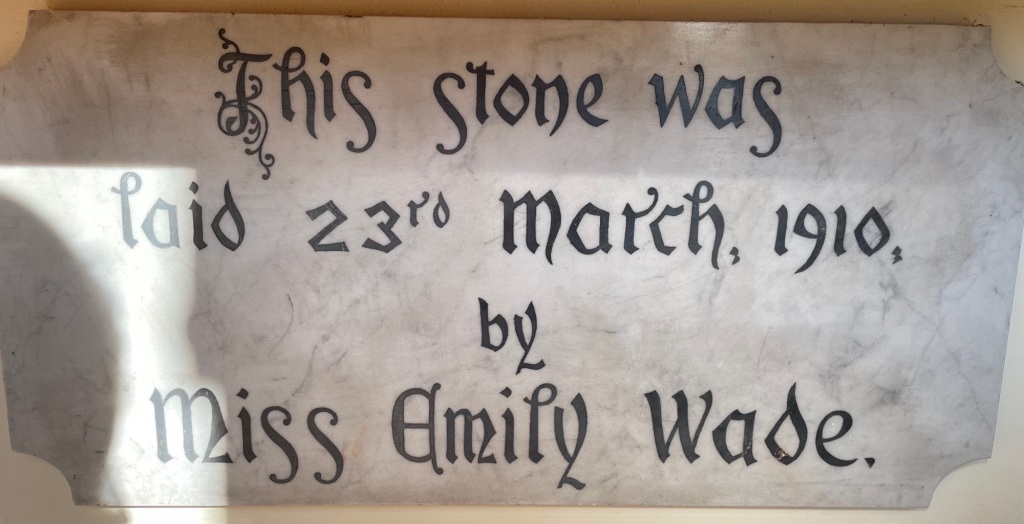 This stone was
laid 23rd March, 1910,
by
Miss Emily Wade.